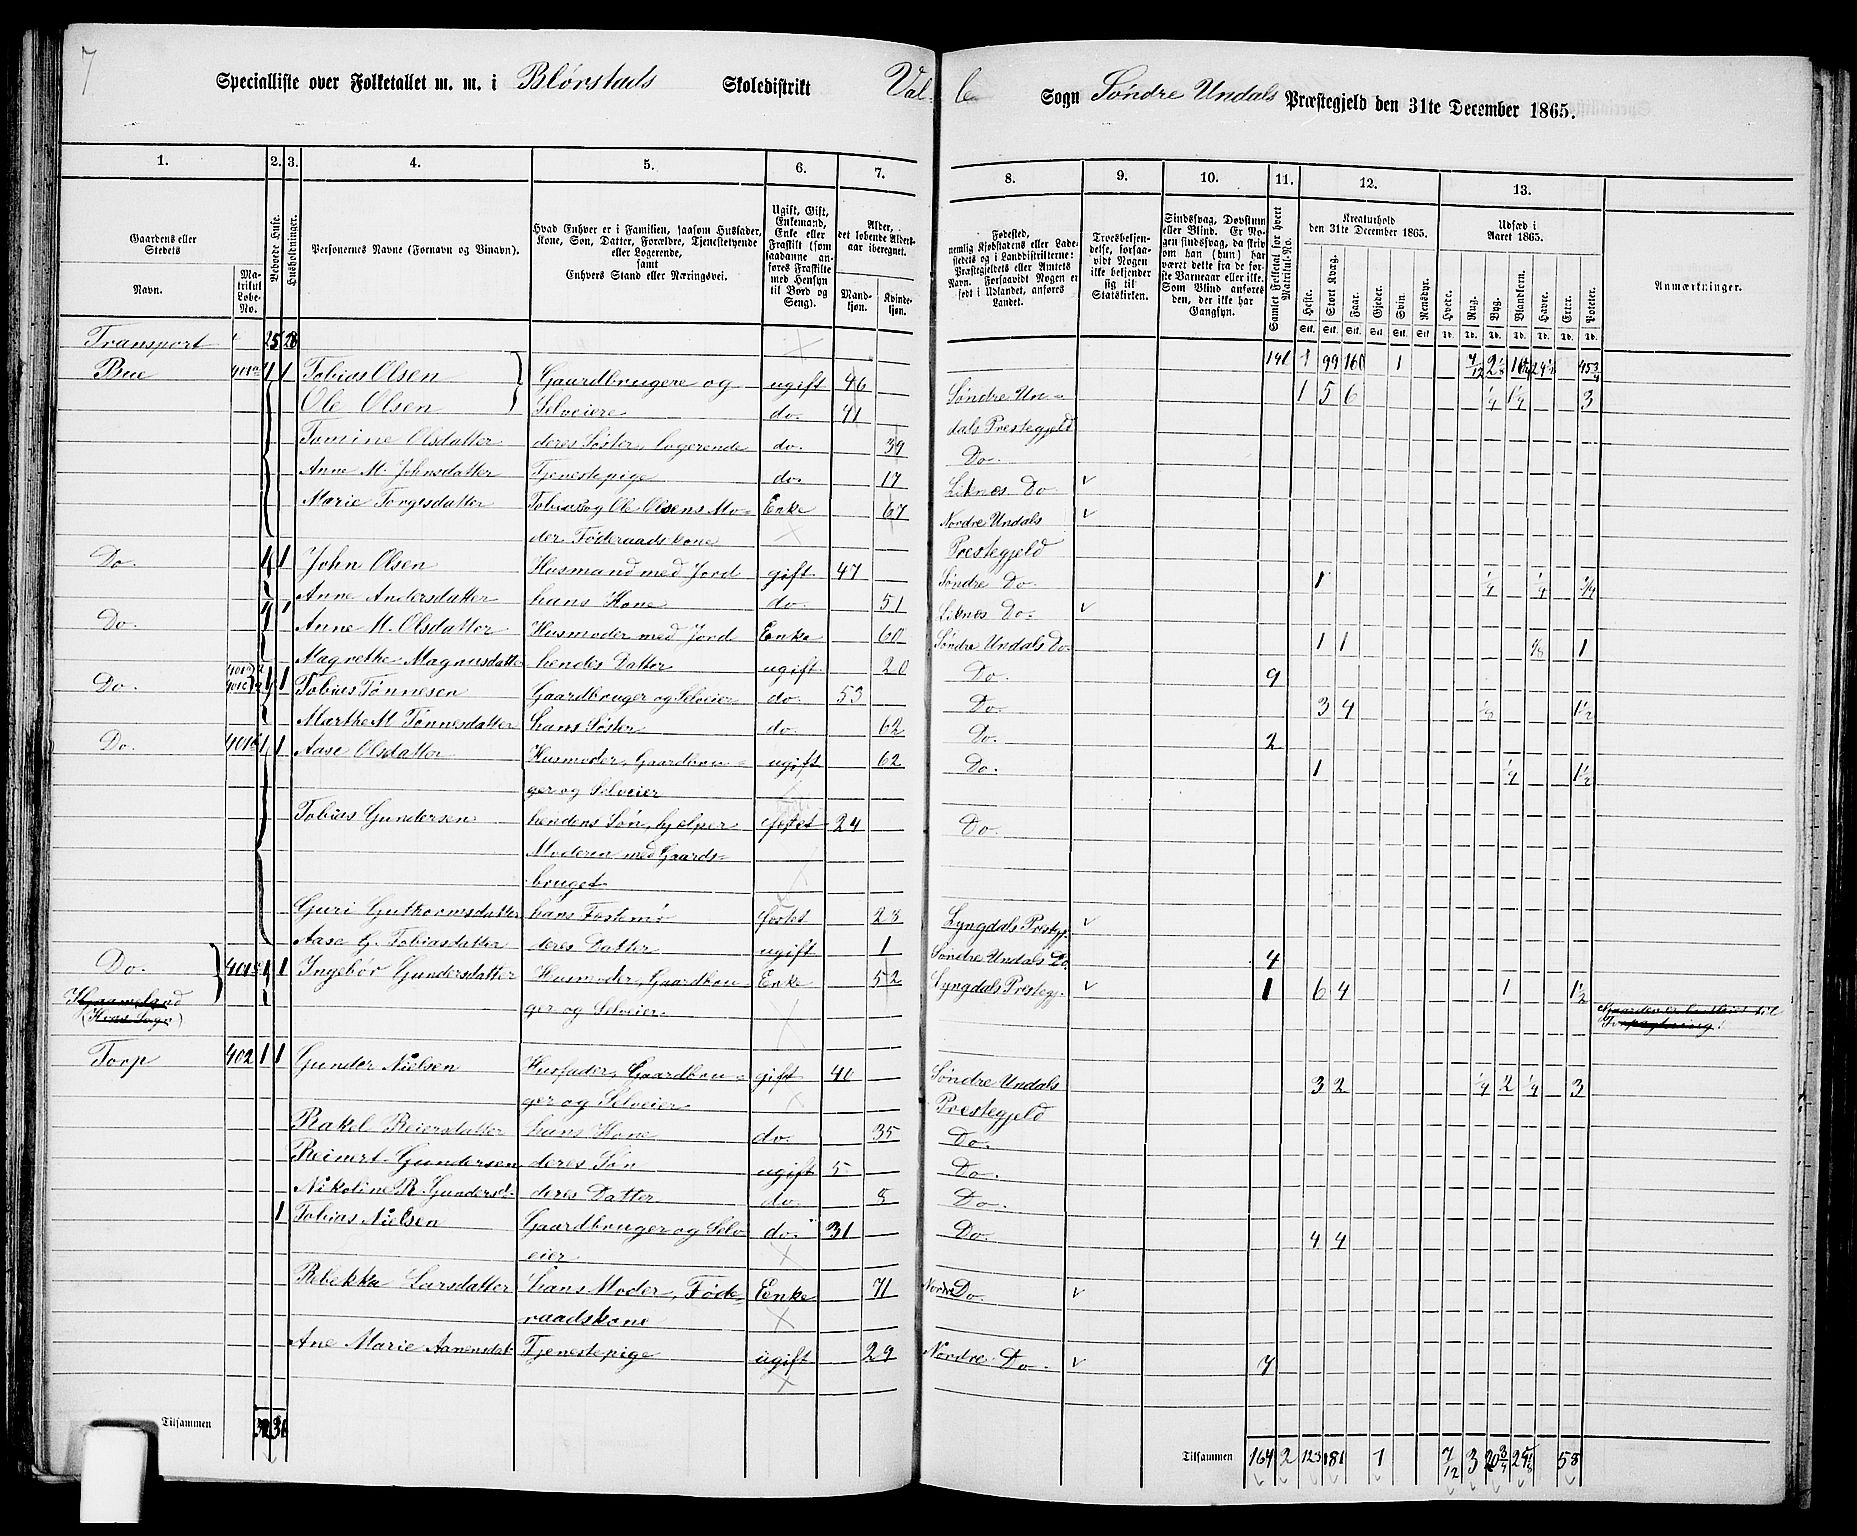 7
Specialliste over Folketallet m. m. i Blørstads Skoledistrikt Valle Sogn Søndre Undals Præstegjeld den 31te December 1865.
1. 2. 3. 4. 5. 6. 7. 8. 9. 10. 11. 12. 13.
Gaardens eller Stedets
Navn.
Matrikul Løbe-No.
Beboede Huse.
Husholdninger.
Personernes Navne (Fornavn og Binavn).
Hvad Enhver er i Familien, saasom Husfader, Kone, Søn, Datter, Forældre, Tjenestetyende eller Logerende, samt Enhvers Stand eller Næringsvei.
Ugift, Gift, Enkemand, Enke eller Fraskilt (som saadanne anføres Fraskilte med Hensyn til Bord og Seng).
Alder, det løbende Aldersaar iberegnet.
Mandkjøn. Kvindekjøn.
Fødested, nemlig Kjøbstadens eller Ladestedets og i Landdistrikterne: Præstegjeldets eller Amtets Navn. Forsaavidt Nogen er født i Udlandet, anføres Landet.
Troesbekjendelse, forsaavidt Nogen ikke bekjender sig til Statskirken.
Sindssvag, Døvstum eller Blind. Er Nogen sindssvag, da skriv om han (hun) har været dette fra de første Barneaar eller ikke. Som Blind anføres den, der ikke har Gangsyn.
Samlet Folketal for hvert Matrikul-No.
Kreaturhold den 31te December 1865.
Heste. Stort Kvæg. Faar. Gjeder. Svin. Rensdyr.
Udsæd i Aaret 1865.
Hvede. Rug. Byg. Blandkorn. Havre. Erter. Poteter.
Anmærkninger.
Transport 25 28 141 1 99 160 1 7/12
Bue 401a 1 1 Tobias Olsen Gaardbrugere og ugift 46 Søndre Un- 1 5 6 1/4 1 1/4 3
Ole Olsen Selveiere do. 41 dals Prestegjeld
Tomine Olsdatter deres Søster, logerende do. 39 Do.
Anne M. Johnsdatter Tjenestepige do. 17 Liknes Do
Marie Torgesdatter Tobias og Ole Olsens Mo- Enke 67 Nordre Undals
der Føderaadskone Prestegjeld
Do 1 1 John Olsen Husmand med Jord gift 47 Søndre Do. 1 1/4 1/4 3/4
Anne Andersdatter hans Kone do. 51 Liknes Do.
Do. 1 1 Anne M. Olsdatter Husmoder med Jord Enke 60 Søndre Undals Do. 1 1 1/8 1
Magrethe Magnusdatter hendes Datter ugift 20 Do. 9
Do. 1 1 Tobias Tønnesen Gaardbruger og Selveier do. 53 Do. 3 4 1/2 1 1/2
Marthe M. Tønnesdatter hans Søster do. 62 Do. 2
Do. 1 1 Aase Olsdatter Husmoder, Gaardbru- ugift 62 Do. 1 1/4 1 1/2
ger og Selveier
Tobias Gundersen hendes Søn, hjelper festet 24 Do.
Moderen med Gaards-
bruget
Guri Guthormsdatter hans Festemø festet 23 Lyngdals Prestgj.
Aase G. Tobiasdatter deres Datter ugift 1 Søndre Undals Do. 4
Do. 1 1 Ingebør Gundersdatter Husmoder, Gaardbru- Enke 52 Lyngdals Prestegj. 1 6 4 1 1 1/2
ger og Selveier.
Torp 402 1 1 Gunder Nielsen Husfader, Gaardbru- gift 40 Søndre Undals 3 2 1/4 2 1/4 3
ger og Selveier Prestegjeld
Rakel Reiersdatter hans Kone do. 35 Do.
Reinert Gundersen deres Søn ugift 5 Do.
Nikoline R. Gundersd. deres Datter do. 8 Do.
1 Tobias Nielsen Gaardbruger og Selv- do. 31 Do. 4 4
eier
Rebekka Larsdatter hans Moder, Føde- Enke 71 Nordre Do
raadskone
Ane Marie Aanensdat. Tjenestepige ugift 29 Nordre Do. 7
Tilsammen Tilsammen 164 2 123 181 1 7/12 3 20 3/4 58